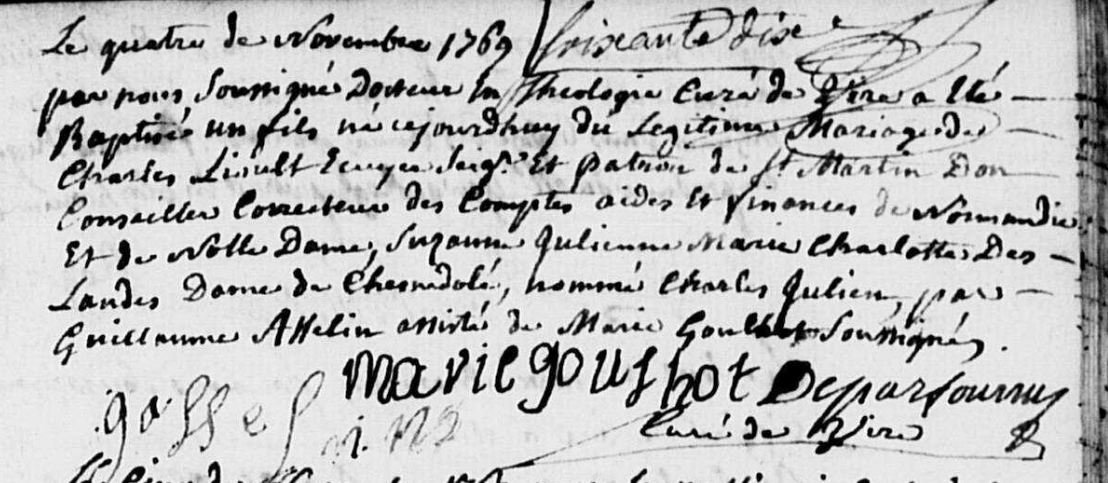 Le quatre de Novembre 1769 soixante dixe
par nous, soussigné Docteur en Theologie Curé de Vire a été
Baptisé un fils né cejourdhuy du Legitime Mariage de
Charles Lioult Ecuyer Seigr. Et patron de St Martin Don
Conseiller Correcteur des Comptes aides et finances de Normandie
Et de Nolle Dame, Suzanne Julienne Marie Charlotte Des
Landes Dame de Chenedolé, nommé Charles Julien, par
Guillaume Asselin assisté de Marie Goulhot soussignés.
Marie goulhot Deparfourru
Curé de Vire